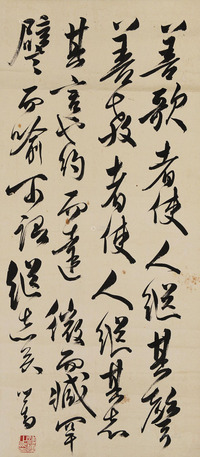 善歌者使人繼其聲
善教者使人繼其志
其言也約而達微而臧罕
譬而喻可謂繼志矣 心畬